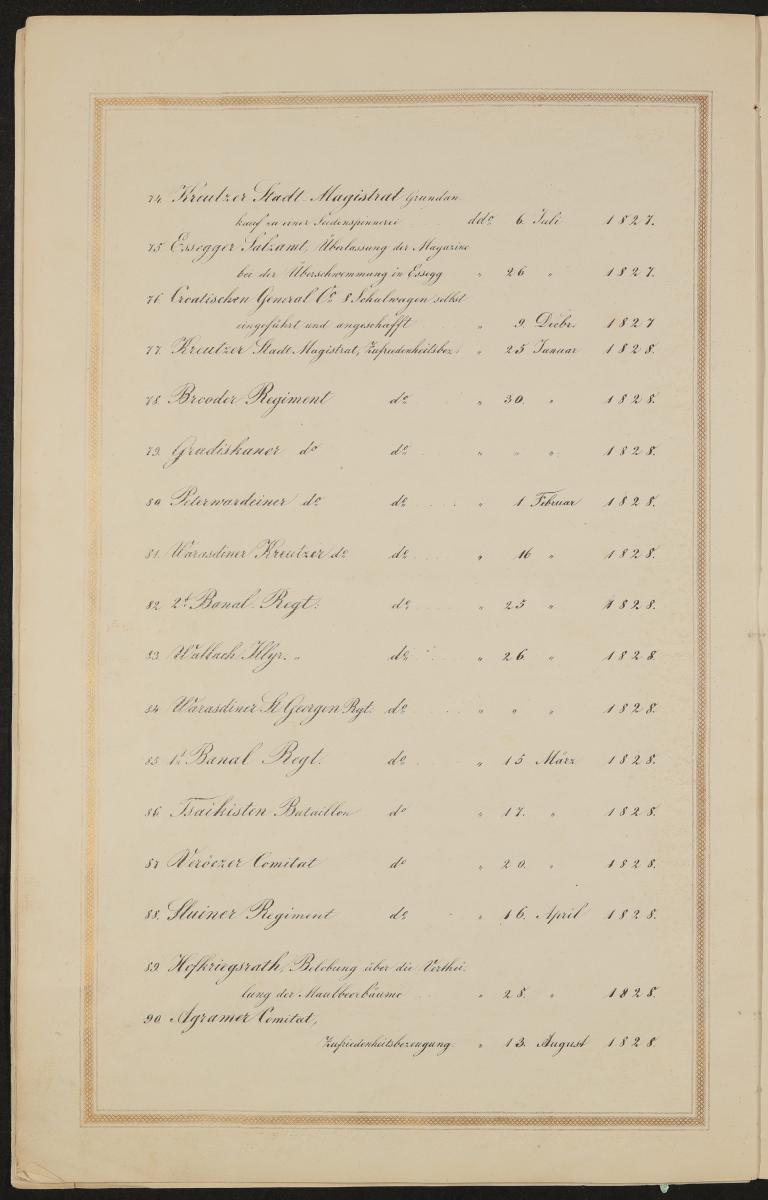 74. Kreutzer Stadt-Magistrat Grundan-
kauf zu einer Seidenspinnerei ddo 6. Juli 1827.
75 Essegger Salzamt, Überlassung der Magazine
bei der Überschwemmung in Essegg " 26 " 1827.
76. Croatischen General Co. 8 Schulwagen selbst
eingeführt und angeschafft " 9. Decbr. 1827
77. Kreutzer Stadt Magistrat, Zufriedenheitsbez. " 25 Januar 1828.
78. Brooder Regiment do " 30. " 1828.
79. Gradiskaner do do " " " 1828.
80. Peterwardeiner do do " 1 Februar 1828.
81. Warasdiner Kreutzer do do " 16 " 1828.
82. 2t. Banal-Regt. do " 25 " 1828.
83. Wallach Illyr. " do " 26. " 1828.
84. Warasdiner St Georgen Rgt. do " " " 1828.
85. 1t. Banal Regt. do " 15 März 1828.
86. Tsaikisten Bataillon do " 17. " 1828.
87 Veröczer Comitat do " 20. " 1828.
88. Sluiner Regiment do " 16. April 1828.
89. Hofkriegsrath, Belobung über die Verthei-
lung der Maulbeerbäume " 28. " 1828.
90. Agramer Comitat,
Zufriedenheitsbezeugung " 13. August 1828.